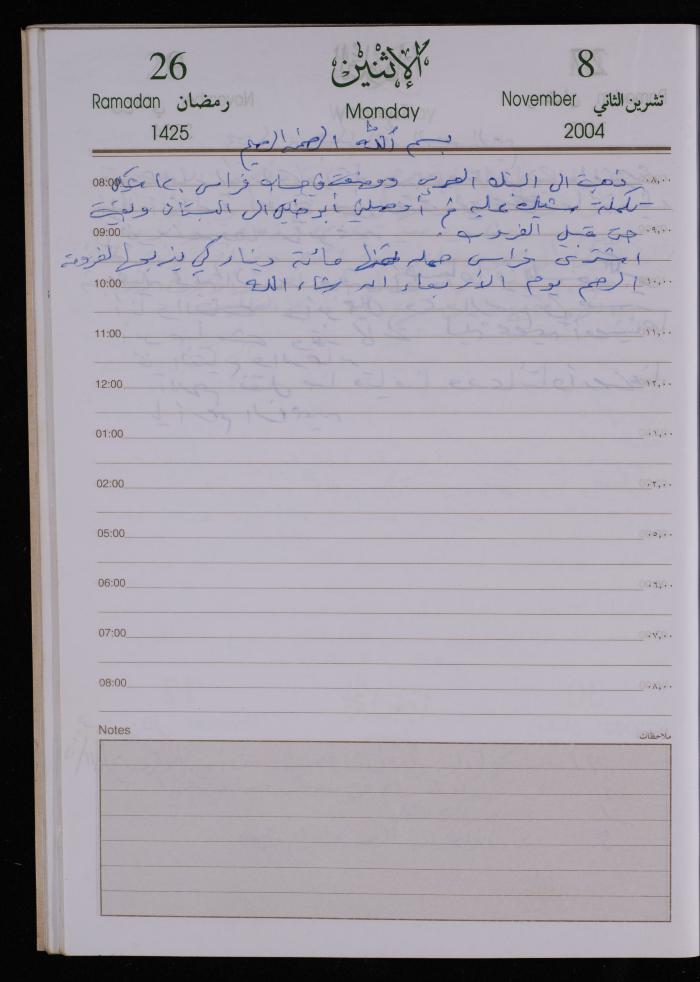 26 الإثنين 8
Ramadan رمضان Monday November تشرين الثاني
1425 2004
بسم الله الرحمن الرحيم
08:00 ذهبت الى البنك العربي ووضعت في حساب فراس ٠٨,٠٠
تكملة شيك عليه ثم أوصلني أبو خليل الى البستان وبقيت
09:00 حتى قبيل الغروب . ٠٩,٠٠
اشترى فراس ثمنها مائة دينار كي يذبحها لفروة
10:00 الرحم يوم الأربعاء ان شاء الله ١٠,٠٠
11:00 ١١,٠٠
12:00 ١٢,٠٠
01:00 ٠١,٠٠
02:00 ٠٢,٠٠
05:00 ٠٥,٠٠
06:00 ٠٦,٠٠
07:00 ٠٧,٠٠
08:00 ٠٨,٠٠
Notes ملاحظات